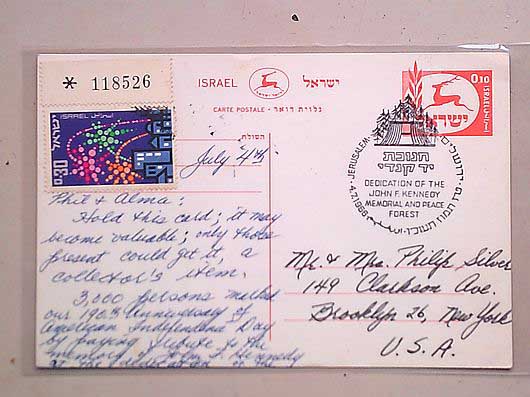 * 118526
ISRAEL ישראל
CARTE POSTALE - גלוית דואר
ISRAEL
ישראל
0.30
0.10
ISRAEL
ישראל
JERUSALEM ירושלים
4.7.1966
חנוכת
יד קנדי
DEDICATION OF THE
JOHN F. KENNEDY
MEMORIAL AND PEACE
FOREST
July 4th
Phil & Alma:
Hold this card; it may
become valuable; only those
present could get it, a
collector's item.
3,000 persons marked
our 190th Anniversary of
American Independence Day
by paying tribute to the
memory of John F. Kennedy
at the dedication of the
Mr & Mrs. Philip Silver
149 Clarkson Ave.
Brooklyn 26, New York
U.S.A.